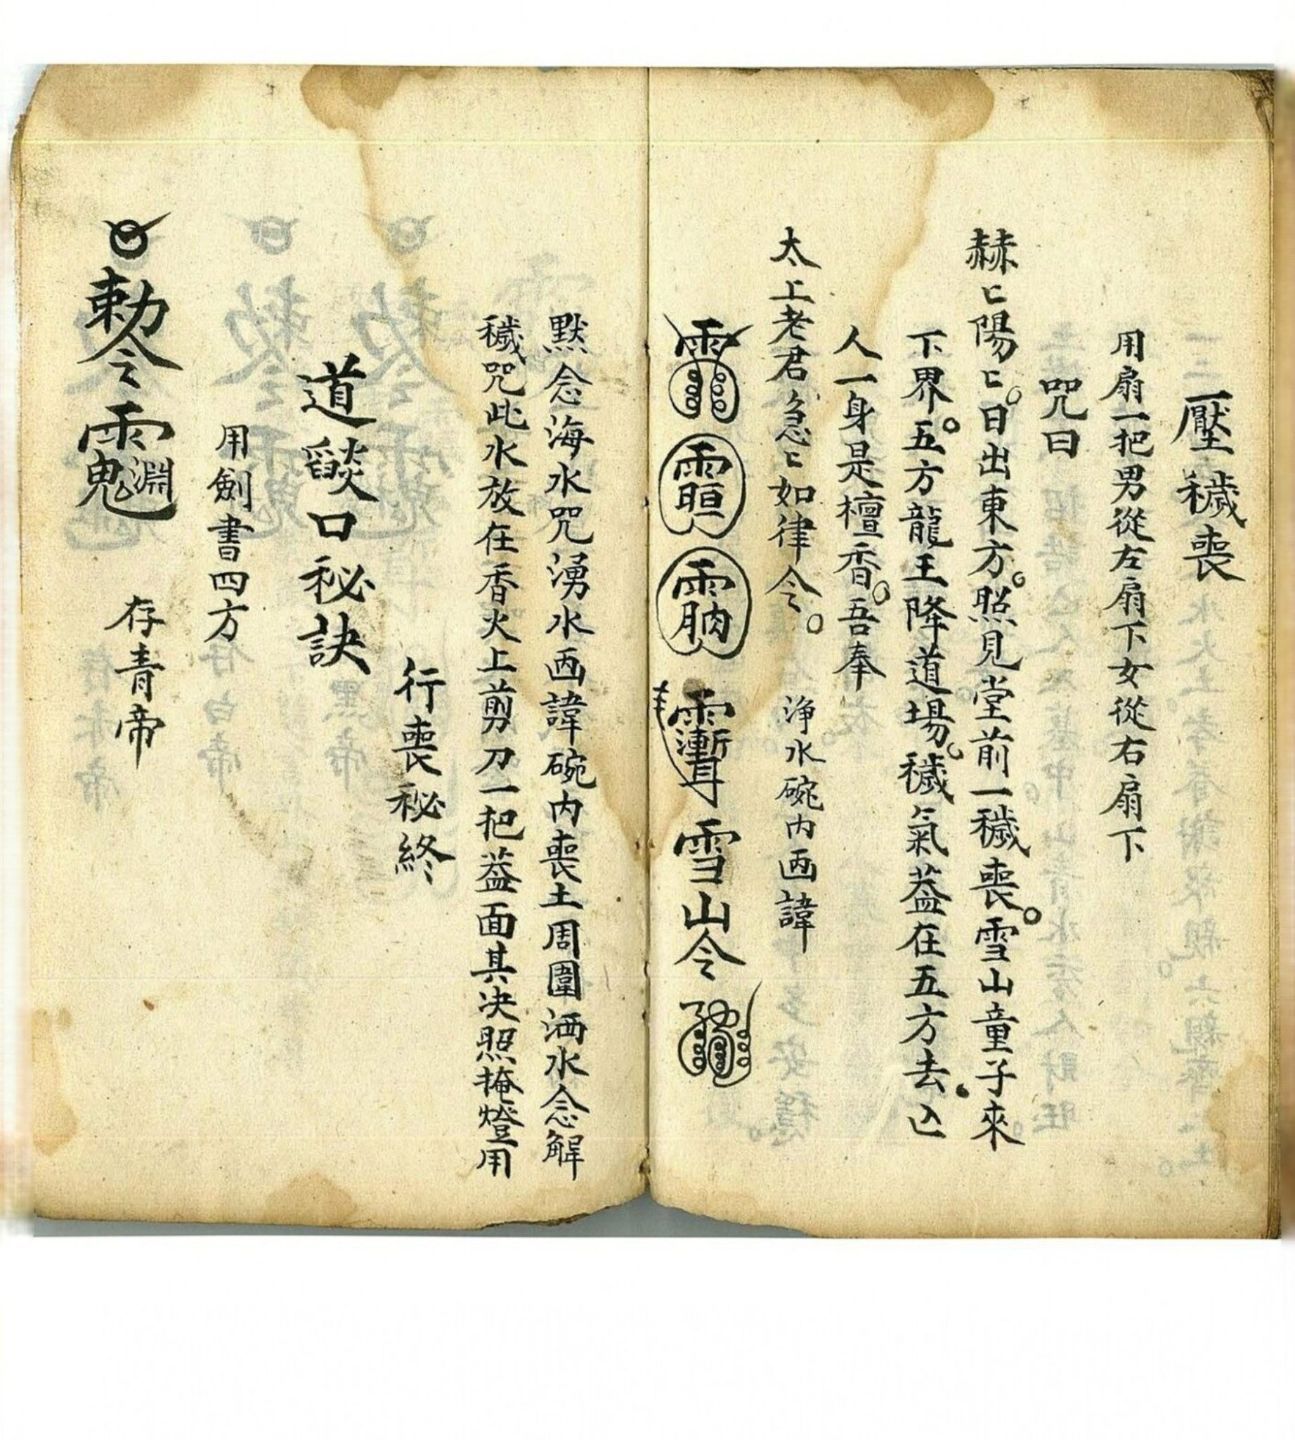 壓穢喪
用扇一把男從左扇下女從右扇下
咒曰
赫匕陽匕。日出東方。照見堂前一穢喪。雪山童子來
下界。五方龍王降道場。穢氣葢在五方去。亾
人一身是檀香。吾奉
太上老君急匕如律令。 浄水碗内画諱
雪山令
默念海水咒湧水画諱碗内喪土周圍洒水念觧
穢咒此水放在香火上剪刀一把葢面其决照掩燈用
行喪秘終
道燄口秘訣
用劍書四方
勅令 存青帝